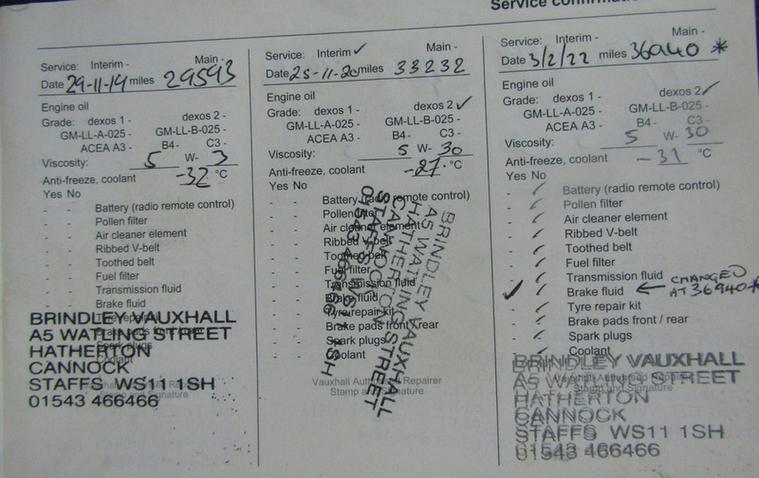 Service confirmation
Service: Interim - Main -
Date 29-11-19 miles 29593
Engine oil
Grade: dexos 1 - dexos 2 -
GM-LL-A-025 - GM-LL-B-025 -
ACEA A3 - B4 - C3 -
Viscosity: 5 W- 3
Anti-freeze, coolant -32 °C
Yes No
- - Battery (radio remote control)
- - Pollen filter
- - Air cleaner element
- - Ribbed V-belt
- - Toothed belt
- - Fuel filter
- - Transmission fluid
- - Brake fluid
Brake pads front / rear
Spark plugs
Coolant
BRINDLEY VAUXHALL
A5 WATLING STREET
HATHERTON
CANNOCK
STAFFS WS11 1SH
01543 466466
Service: Interim ✓ Main -
Date 25-11-20 miles 33232
Engine oil
Grade: dexos 1 - dexos 2 ✓
GM-LL-A-025 - GM-LL-B-025 -
ACEA A3 - B4 - C3 -
Viscosity: 5 W- 30
Anti-freeze, coolant -27 °C
Yes No
- - Battery (radio remote control)
- - Pollen filter
- - Air cleaner element
- - Ribbed V-belt
- - Toothed belt
- - Fuel filter
- - Transmission fluid
- - Brake fluid
- - Tyre repair kit
- - Brake pads front / rear
- - Spark plugs
- - Coolant
Vauxhall Authorised Repairer
Stamp and Signature
BRINDLEY VAUXHALL
A5 WATLING STREET
HATHERTON
CANNOCK
STAFFS WS11 1SH
01543 466466
Service: Interim - Main -
Date 3/2/22 miles 36940 *
Engine oil
Grade: dexos 1 - dexos 2 ✓
GM-LL-A-025 - GM-LL-B-025 -
ACEA A3 - B4 - C3 -
Viscosity: 5 W- 30
Anti-freeze, coolant -31 °C
Yes No
- ✓ Battery (radio remote control)
- ✓ Pollen filter
- ✓ Air cleaner element
- ✓ Ribbed V-belt
- ✓ Toothed belt
- ✓ Fuel filter
- ✓ Transmission fluid
✓ ✓ Brake fluid ← CHANGED AT 36940*
- ✓ Tyre repair kit
- ✓ Brake pads front / rear
- ✓ Spark plugs
- ✓ Coolant
BRINDLEY VAUXHALL
A5 WATLING STREET
HATHERTON
CANNOCK
STAFFS WS11 1SH
01543 466466